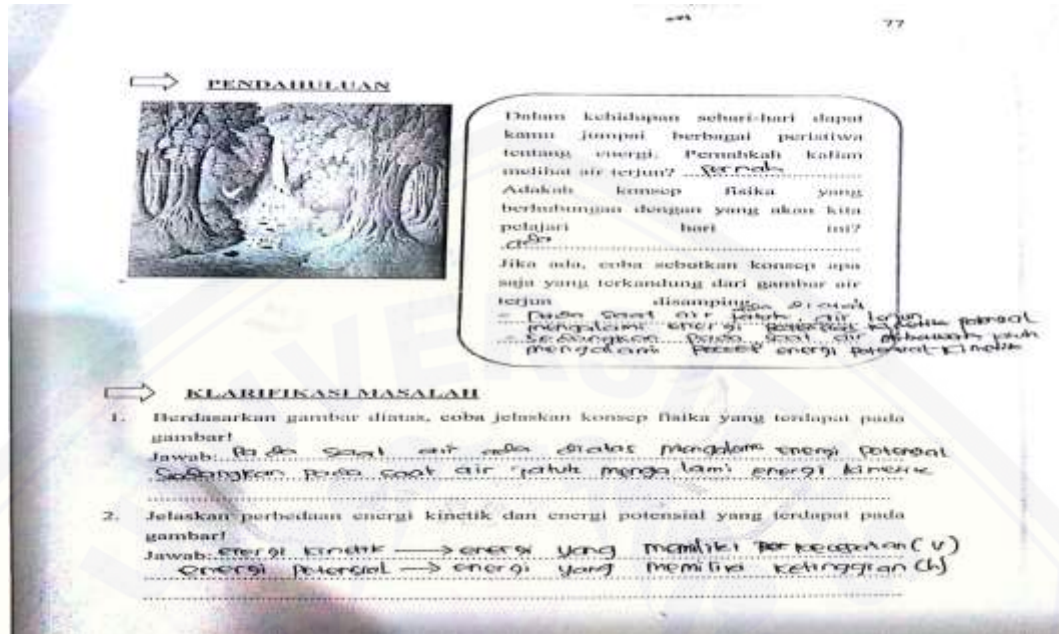 77
PENDAHULUAN
Dalam kehidupan sehari-hari dapat
kamu jumpai berbagai peristiwa
tentang energi. Pernahkah kalian
melihat air terjun? pernah
Adakah konsep fisika yang
berhubungan dengan yang akan kita
pelajari hari ini?
ada
Jika ada, coba sebutkan konsep apa
saja yang terkandung dari gambar air
terjun disamping
- pada saat air air terjun
mengalami energi potensial
- Sedangkan pada saat air jatuh
mengalami energi
KLARIFIKASI MASALAH
1. Berdasarkan gambar diatas, coba jelaskan konsep fisika yang terdapat pada
gambar!
Jawab: Pada saat air ada diatas mengalami energi potensial
Sedangkan pada saat air jatuh mengalami energi kinetik
2. Jelaskan perbedaan energi kinetik dan energi potensial yang terdapat pada
gambar!
Jawab: energi kinetik → energi yang memiliki kecepatan (v)
energi potensial → energi yang memiliki ketinggian (h)